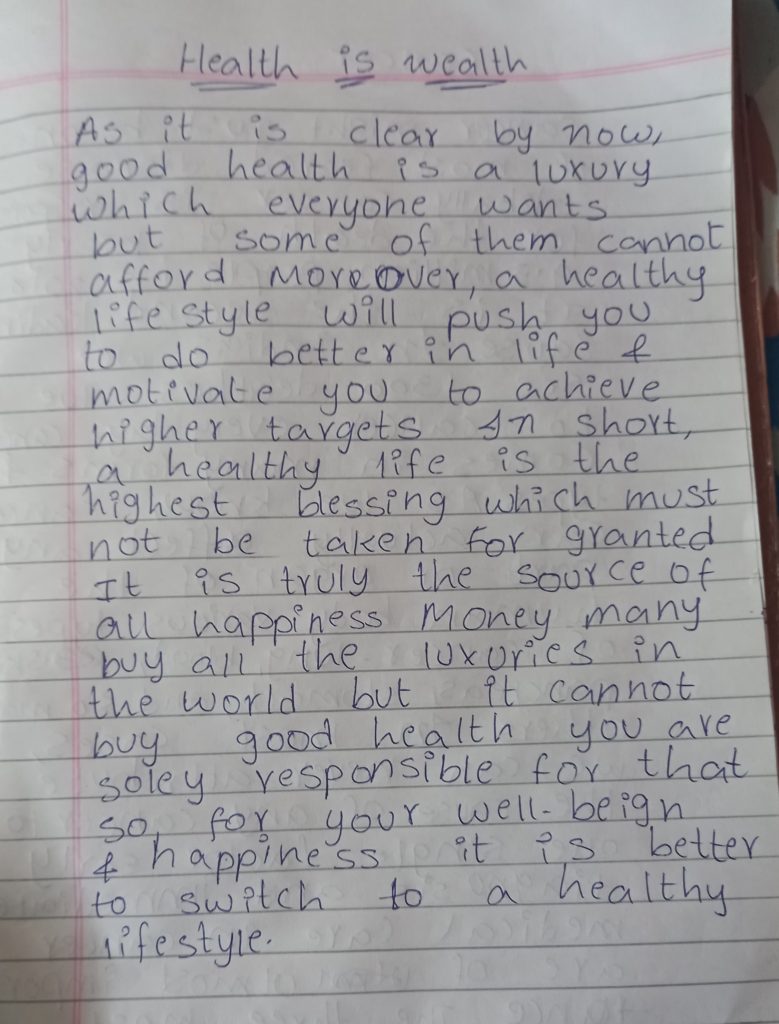 Health is wealth
As it is clear by now,
good health is a luxury
which everyone wants
but some of them cannot
afford Moreover, a healthy
life style will push you
to do better in life &
motivate you to achieve
higher targets In short,
a healthy life is the
highest blessing which must
not be taken for granted
It is truly the source of
all happiness Money many
buy all the luxuries in
the world but it cannot
buy good health you are
soley responsible for that
so, for your well-beign
& happiness it is better
to switch to a healthy
lifestyle.